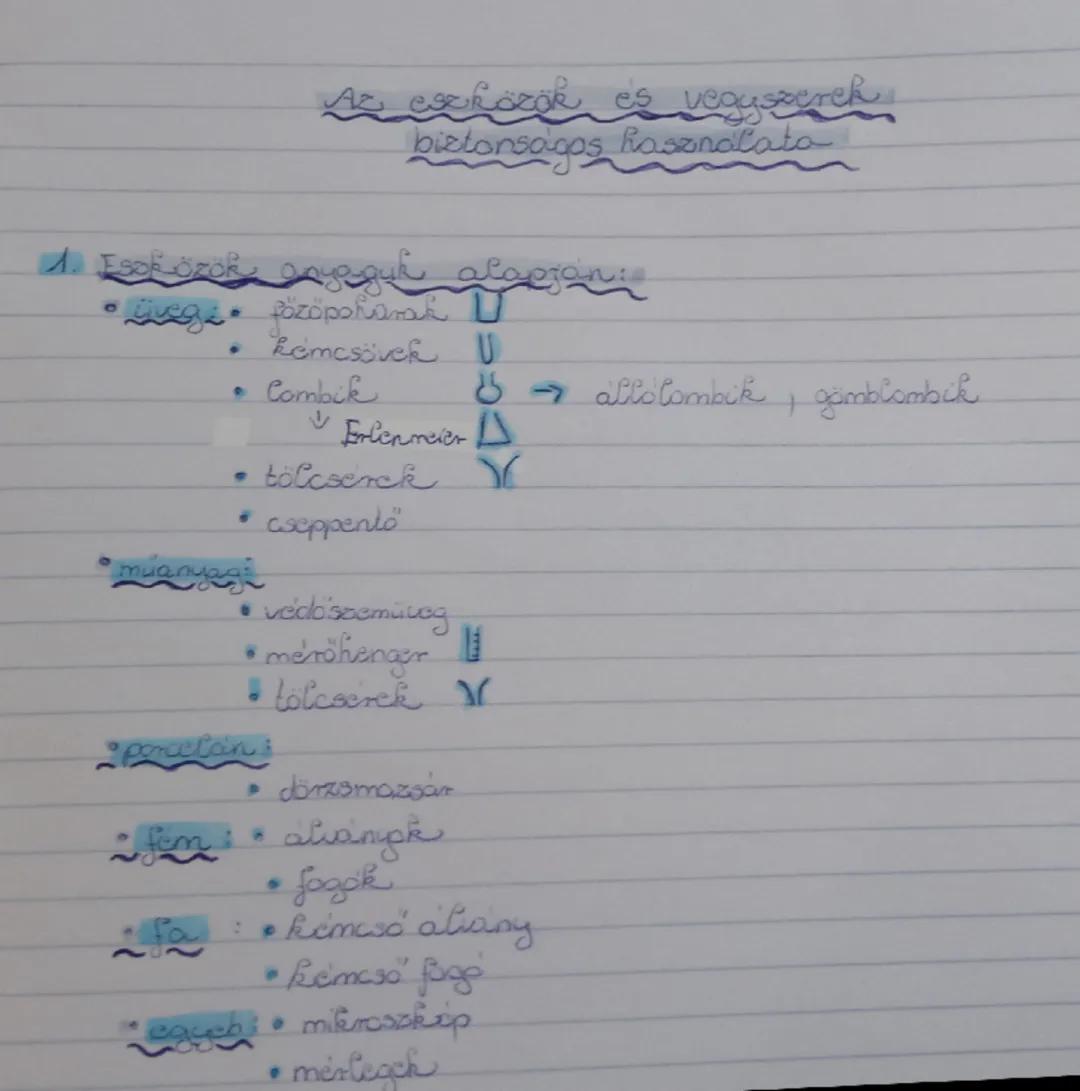 Az eszközök és vegyszerek
biztonságos használata
1. Eszközök anyaguk alapján:
• üveg: • főzőpoharak
• kémcsövek
• lombik → állólombik, gömblombik
↓ Erlenmeier
• tölcsérek
• cseppentő
• műanyag:
• védőszemüveg
• mérőhenger
• tölcsérek
• porcelán:
• dörzsmozsár
• fém: • álványok
• fogók
• fa: • kémcső álvány
• kémcső fogó
• egyéb: • mikroszkóp
• mérlegek